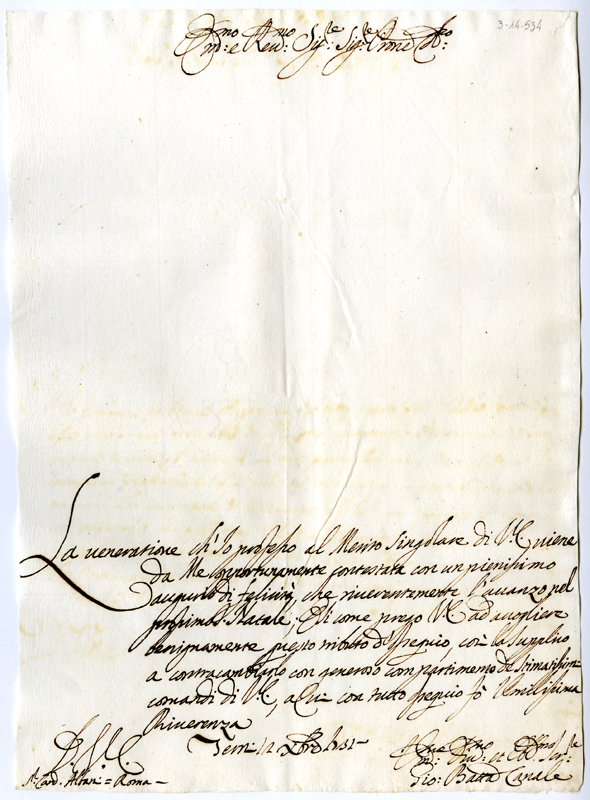 3-14-534
Em:mo e Reu:mo Sig:re Sig:re e P̃rone Col:mo
La ueneratione ch'Io professo al Merito Singolare di V.E. uiene
da Me opportunamente contestata con un pienissimo
augurio di felicità, che riuerentemente l'auanzo nel
prossimo S. Natale; E si come prego V.E. ad accogliere
benignamente questo tributo d'ossequio, così la supplico
a contracambiarlo con generoso compartimento de stimatissimi
comandi di V.E., a Cui con tutto ossequio fò Umilissima
Riuerenza
Terni 12 Xbre 1731
D. V. E.
Sr. Card. Albani = Roma
Um:mo Deu:mo et Obl:mo Ser:re
Gio: Batta Canale